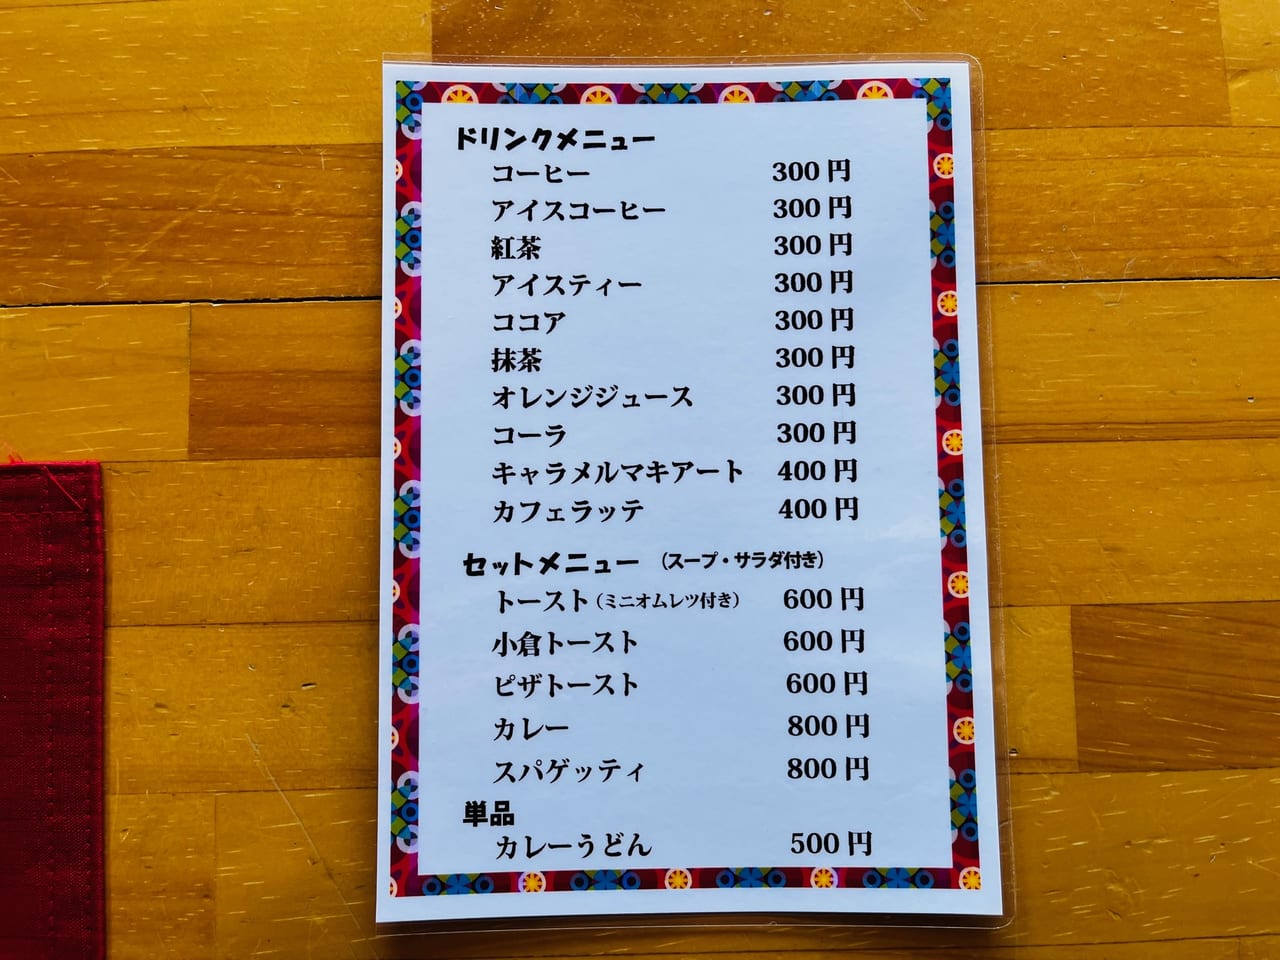 ドリンクメニュー
コーヒー 300円
アイスコーヒー 300円
紅茶 300円
アイスティー 300円
ココア 300円
抹茶 300円
オレンジジュース 300円
コーラ 300円
キャラメルマキアート 400円
カフェラッテ 400円
セットメニュー (スープ・サラダ付き)
トースト(ミニオムレツ付き) 600円
小倉トースト 600円
ピザトースト 600円
カレー 800円
スパゲッティ 800円
単品
カレーうどん 500円